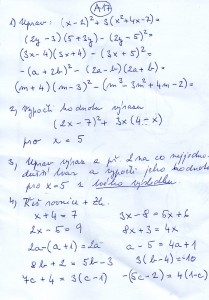 A17
1) Uprav: (x-2)² + 3(x²+4x-2) =
(2y-3)(5+3y) - (2y-5)² =
(3x-4)(3x+4) - (3x+5)² =
-(a+2b)² - (2a-b)(2a+b) =
(m+4)(m-3)² - (m³-3m²+4m-2) =
2) Vypočti hodnotu výrazu
(2x-7)² + 3x(4-x)
pro x = 5
3) Uprav výraz a př 2 na co nejjedno-
dušší tvar a vypočti jeho hodnotu
pro x=5 z výsledku
4) Řeš rovnice + Zk.
x+4 = 7 3x-8 = 5x+6
2x-5 = 9 8x+3 = 4x
2a-(a+1) = 2a a-5 = 4a+1
8b+2 = 5b-3 3(b-4) = -10
7c+4 = 3(c-1) -(5c-2) = 4(1-c)